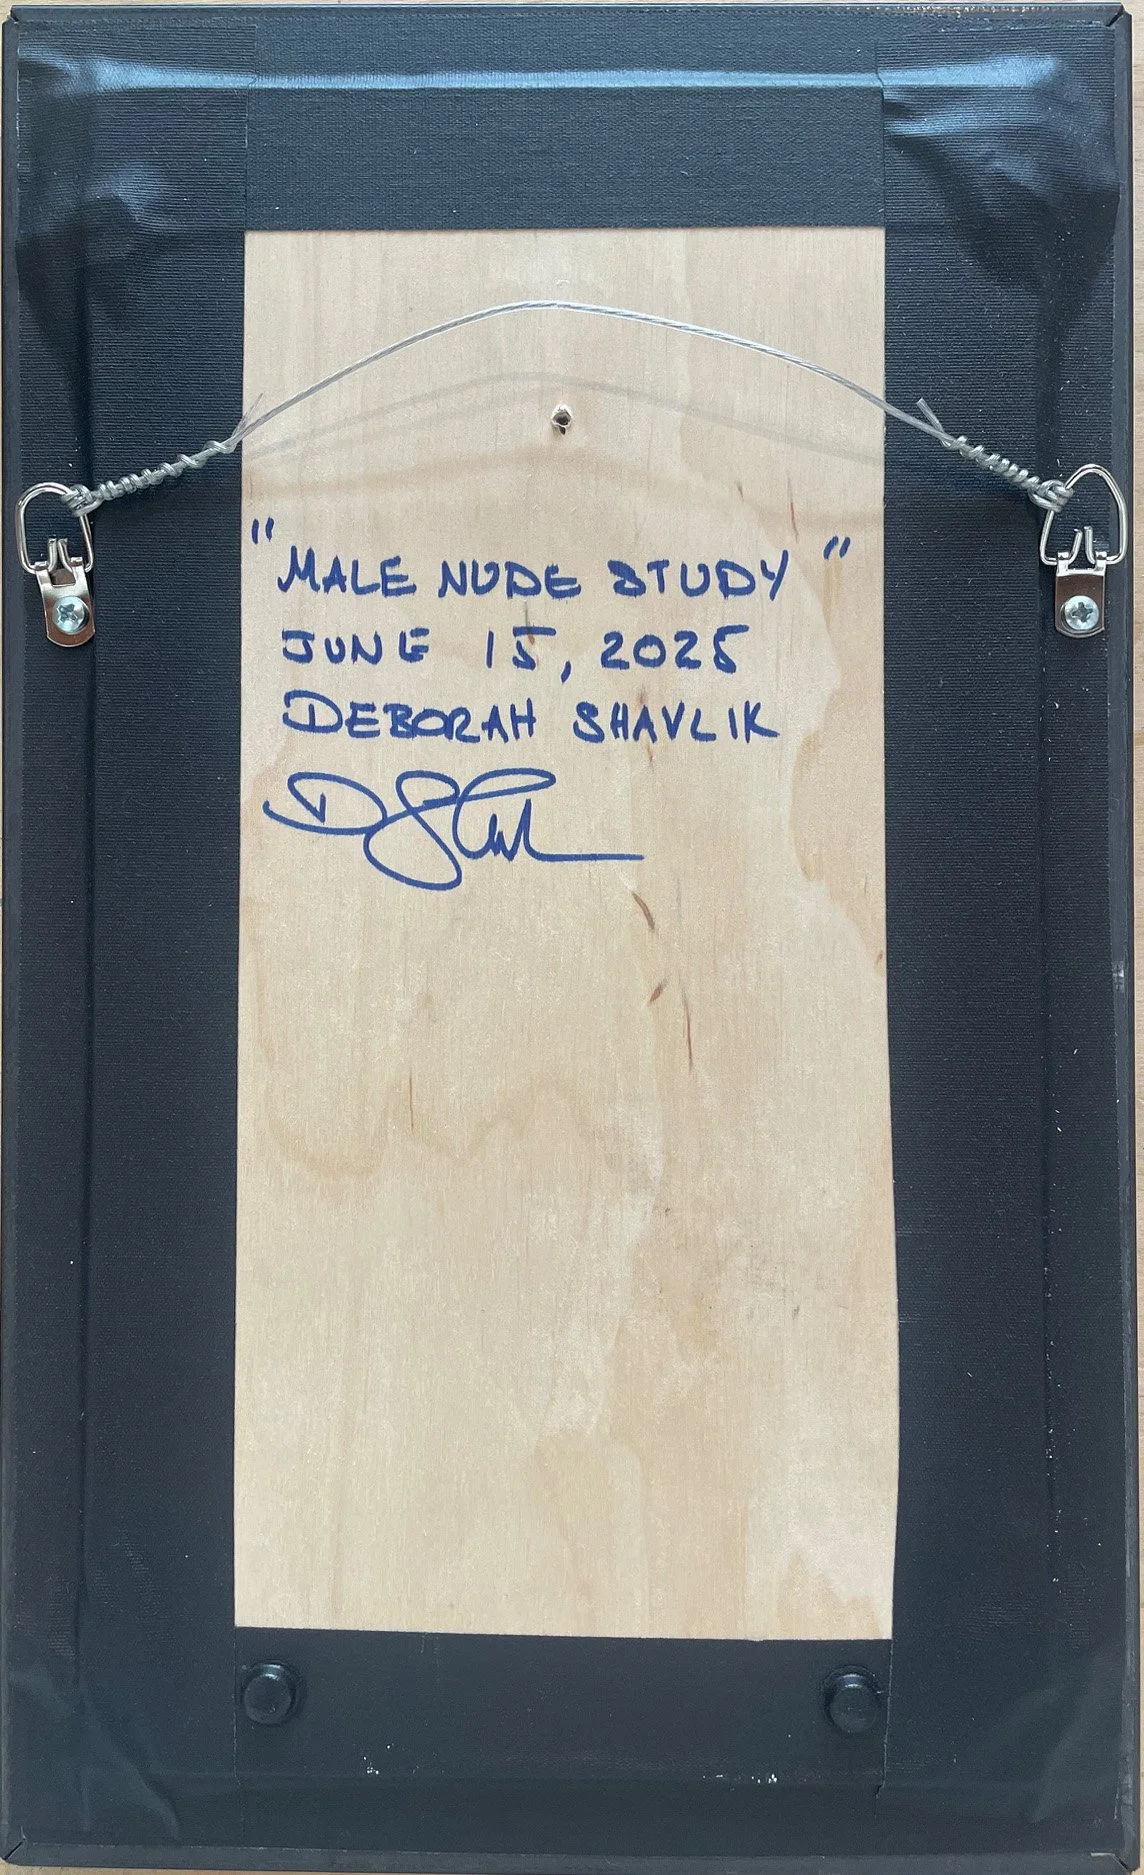 "MALE NUDE STUDY"
JUNE 15, 2025
DEBORAH SHAVLIK